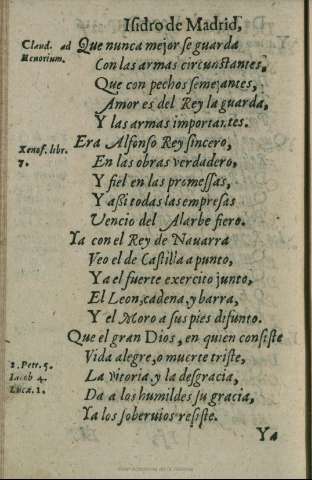 Isidro de Madrid,
Claud. ad
Honorium.
Que nunca mejor se guarda
Con las armas circunstantes,
Que con pechos semejantes,
Amor es del Rey la guarda,
Y las armas importantes.
Xenof. libr.
7.
Era Alfonso Rey sincero,
En las obras verdadero,
Y fiel en las promessas,
Y assi todas las empresas
Vencio del Alarbe fiero.
Ya con el Rey de Nauarra
Veo el de Castilla a punto,
Ya el fuerte exercito junto,
El Leon, cadena, y barra,
Y el Moro a sus pies difunto.
Que el gran Dios, en quien consiste
Vida alegre, o muerte triste,
1. Petr. 5.
Iacob 4.
Lucæ. 1.
La vitoria, y la desgracia,
Da a los humildes su gracia,
Ya los soberuios resiste.
Ya